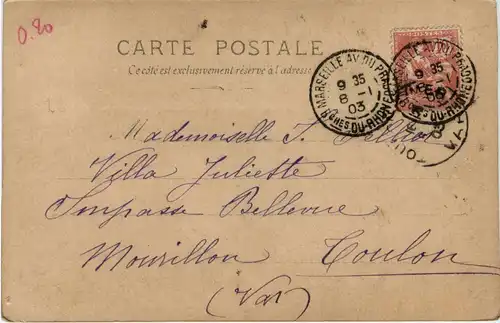 0.80
CARTE POSTALE
Ce côté est exclusivement réservé à l'adresse
MARSEILLE AV. DU PR
9 35
8 -1
03
BCHES DU-RHONE
POSTES
9 35
Mademoiselle J.
Villa Juliette
Impasse Bellevue
Mourillon Toulon
(Var)